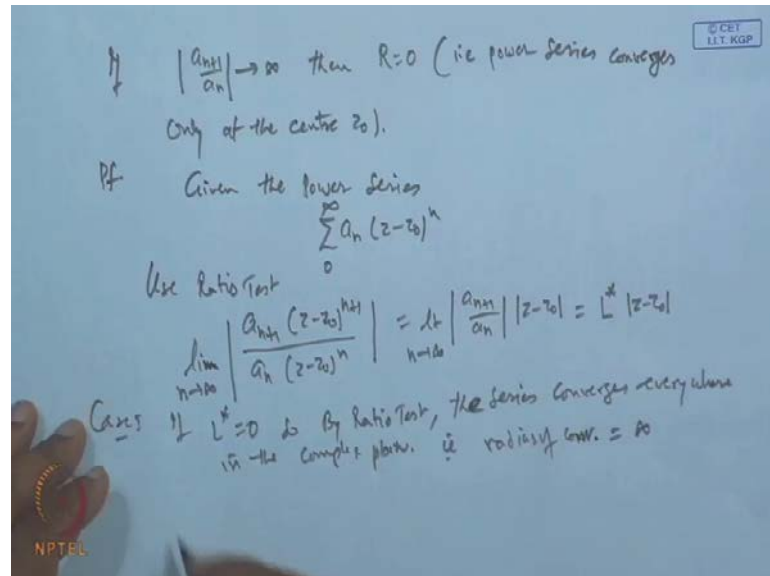 © CET
I.I.T. KGP
If |a_{n+1}/a_n| → ∞ then R=0 (ie power series converges
only at the centre z₀).
Pf Given the Power Series
∑_{0}^{∞} a_n (z-z₀)^n
Use Ratio Test
lim_{n→∞} |a_{n+1} (z-z₀)^{n+1} / a_n (z-z₀)^n| = lt_{n→∞} |a_{n+1}/a_n| |z-z₀| = L* |z-z₀|
Cases If L*=0 So By Ratio Test, the series converges everywhere
in the complex plane. ie radius of conv. = ∞
NPTEL